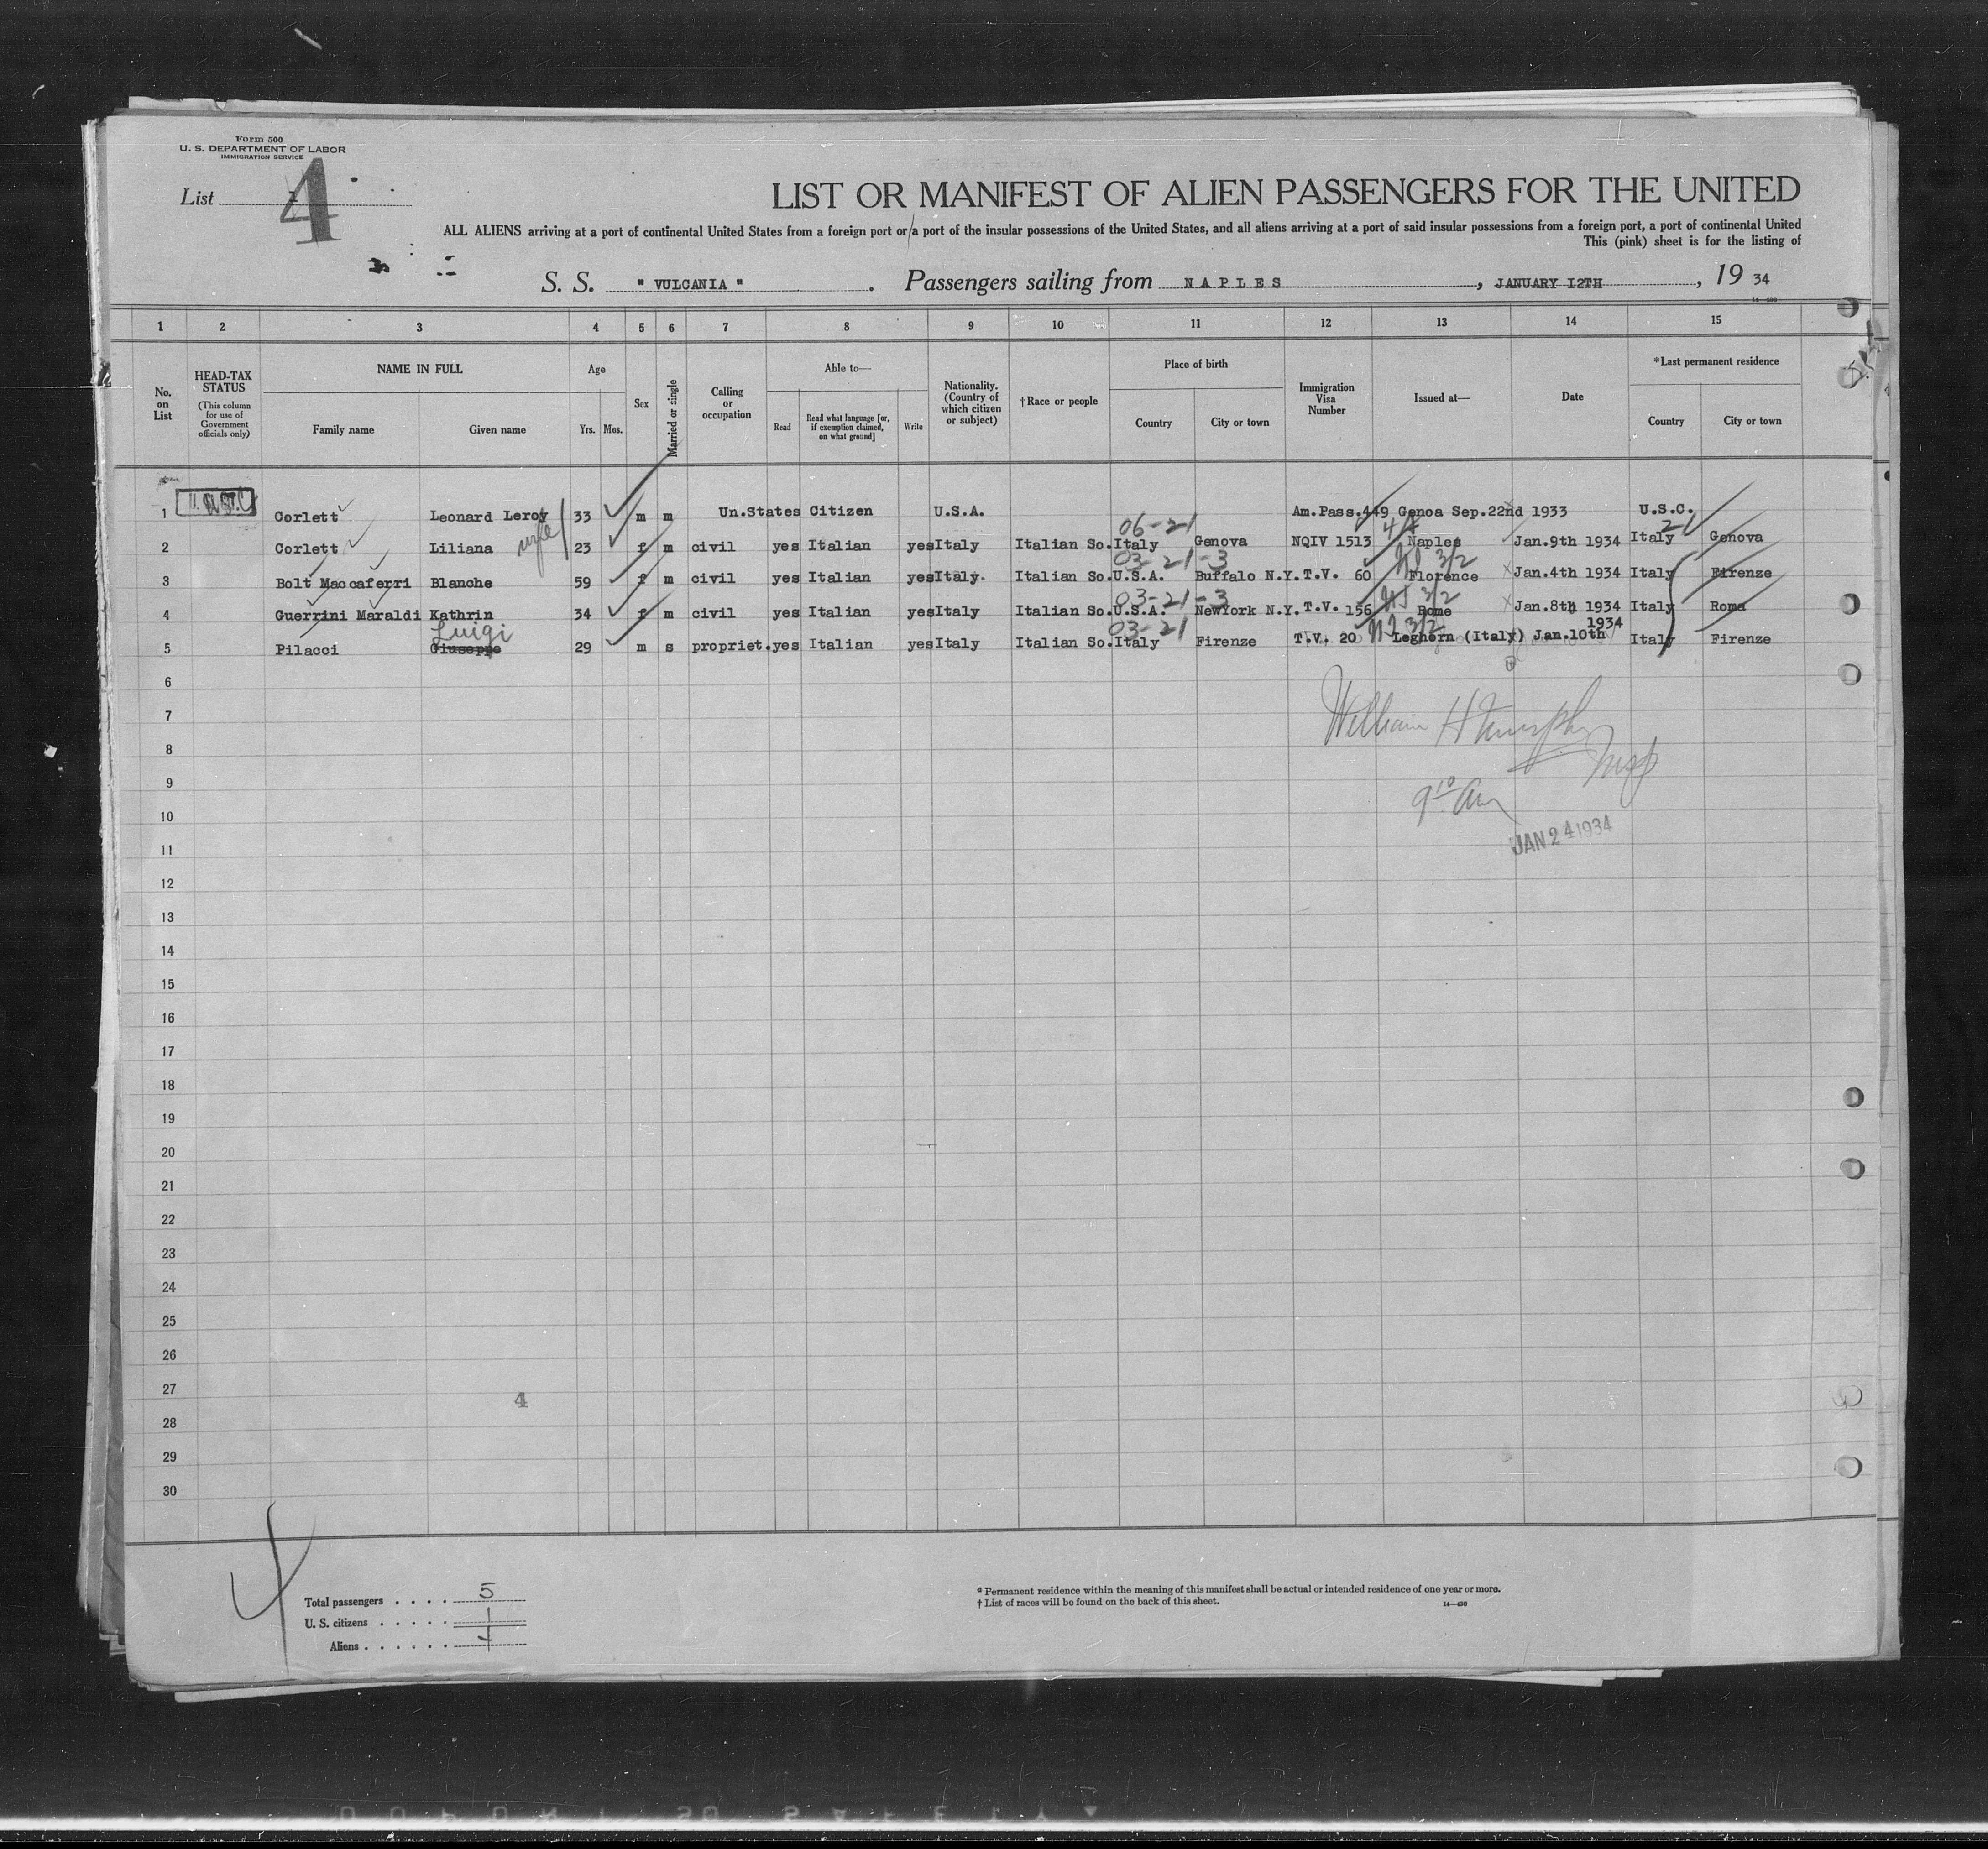 Form 500
U. S. DEPARTMENT OF LABOR
IMMIGRATION SERVICE
List 4
LIST OR MANIFEST OF ALIEN PASSENGERS FOR THE UNITED
ALL ALIENS arriving at a port of continental United States from a foreign port or a port of the insular possessions of the United States, and all aliens arriving at a port of said insular possessions from a foreign port, a port of continental United
This (pink) sheet is for the listing of
S. S. " VULCANIA " . Passengers sailing from NAPLES , JANUARY 12TH , 19 34
14-430
1 2 3 4 5 6 7 8 9 10 11 12 13 14 15
No. on List
HEAD-TAX STATUS (This column for use of Government officials only)
NAME IN FULL
Family name Given name
Age
Yrs. Mos.
Sex
Married or single
Calling or occupation
Able to—
Read Read what language [or, if exemption claimed, on what ground] Write
Nationality. (Country of which citizen or subject)
†Race or people
Place of birth
Country City or town
Immigration Visa Number
Issued at—
Date
*Last permanent residence
Country City or town
1 Corlett Leonard Leroy 33 m m Un.States Citizen U.S.A. Am.Pass.449 Genoa Sep.22nd 1933 U.S.C.
06-21 4A 21
2 Corlett Liliana wife 23 f m civil yes Italian yes Italy Italian So. Italy Genova NQIV 1513 Naples Jan.9th 1934 Italy Genova
03-21-3 3/2
3 Bolt Maccaferri Blanche 59 f m civil yes Italian yes Italy. Italian So. U.S.A. Buffalo N.Y. T.V. 60 Florence Jan.4th 1934 Italy Firenze
03-21-3 3/2
4 Guerrini Maraldi Kathrin 34 f m civil yes Italian yes Italy Italian So. U.S.A. NewYork N.Y. T.V. 156 Rome Jan.8th 1934 Italy Roma
Luigi 03-21 3/2 1934
5 Pilacci Giuseppe 29 m s propriet. yes Italian yes Italy Italian So. Italy Firenze T.V. 20 Leghorn (Italy) Jan.10th Italy Firenze
6
7 William H Murphy
8 Insp
9
10 9 10 am
11 JAN 24 1934
12
13
14
15
16
17
18
19
20
21
22
23
24
25
26
27
4
28
29
30
4
Total passengers . . . . 5
U. S. citizens . . . . . 1
Aliens . . . . . .
* Permanent residence within the meaning of this manifest shall be actual or intended residence of one year or more.
† List of races will be found on the back of this sheet.
14-430